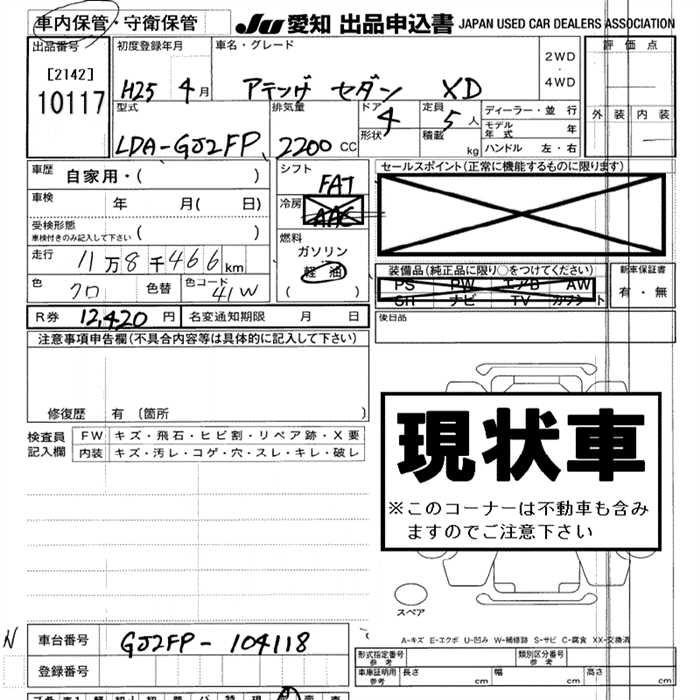 車内保管・守衛保管
JU 愛知 出品申込書 JAPAN USED CAR DEALERS ASSOCIATION
出品番号
[2142]
10117
初度登録年月
H25 4月
車名・グレード
アテンザ セダン XD
2WD
・
4WD
評価点
外装 内装
型式
LDA-GJ2FP
排気量
2200 CC
ドア 4
形状
定員 5 人
積載 kg
ディーラー・並行
モデル年式 年
ハンドル 左・右
車歴 自家用・( )
車検 年 月( 日)
受検形態
車検付きのみ記入して下さい ( )
走行 11万8千466km
色 クロ 色替 色コード 41W
シフト FAT
冷房 AAC
燃料
ガソリン
軽油
( )
セールスポイント(正常に機能するものに限ります)
装備品(純正品に限り○をつけてください)
PS PW エアB AW
SR ナビ TV カワシート
新車保証書
有・無
R券 12,420 円 名変通知期限 月 日
後日品
注意事項申告欄(不具合内容等は具体的に記入して下さい)
修復歴 有 〔箇所 〕
検査員記入欄
FW キズ・飛石・ヒビ割・リペア跡・X要
内装 キズ・汚レ・コゲ・穴・スレ・キレ・破レ
現状車
※このコーナーは不動車も含み
ますのでご注意下さい
スペア
A-キズ E-エクボ U-凹み W-補修跡 S-サビ C-腐食 XX-交換済
N
車台番号 GJ2FP-104118
登録番号
形式指定番号 参考
類別区分番号 参考
車庫証明用 参考 長さ cm 幅 cm 高さ cm